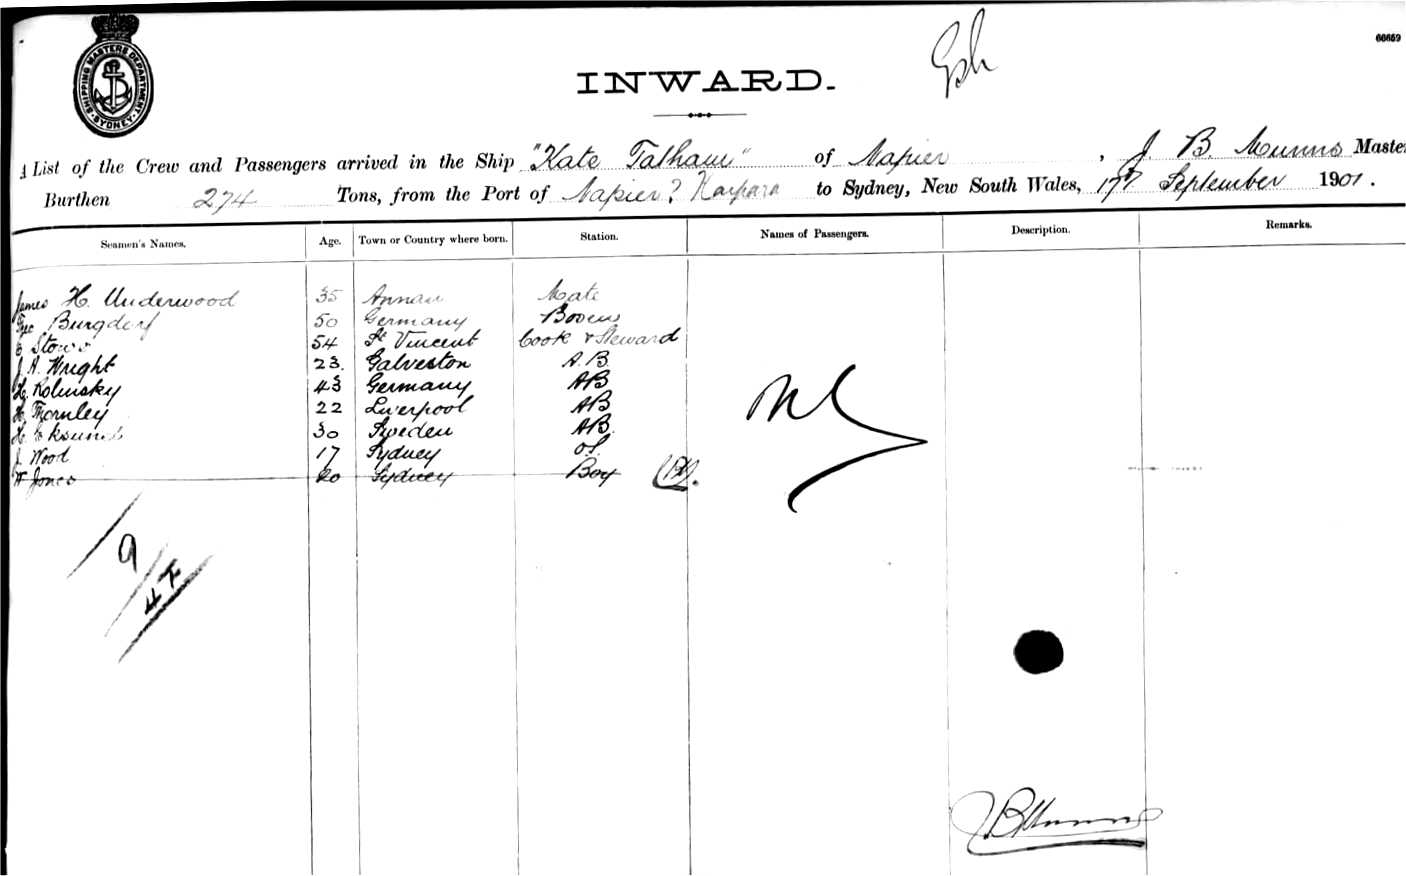 SHIPPING MASTERS DEPARTMENT
SYDNEY
66659
INWARD.
A List of the Crew and Passengers arrived in the Ship "Kate Tatham" of Napier, J. B. Munns Master
Burthen 274 Tons, from the Port of Napier? Kaipara to Sydney, New South Wales, 17th September 1901.
Seamen's Names. Age. Town or Country where born. Station. Names of Passengers. Description. Remarks.
James H. Underwood 35 Annan Mate
Burgdorf 50 Germany Bosun
E Stows 54 St Vincent Cook & Steward
J A. Wright 23. Galveston A.B.
H. Rolinsky 43 Germany AB
H. Thornley 22 Liverpool AB
H. 30 Sweden AB.
J Wood 17 Sydney OS.
W Jones 20 Sydney Boy
9
J. B. Munns